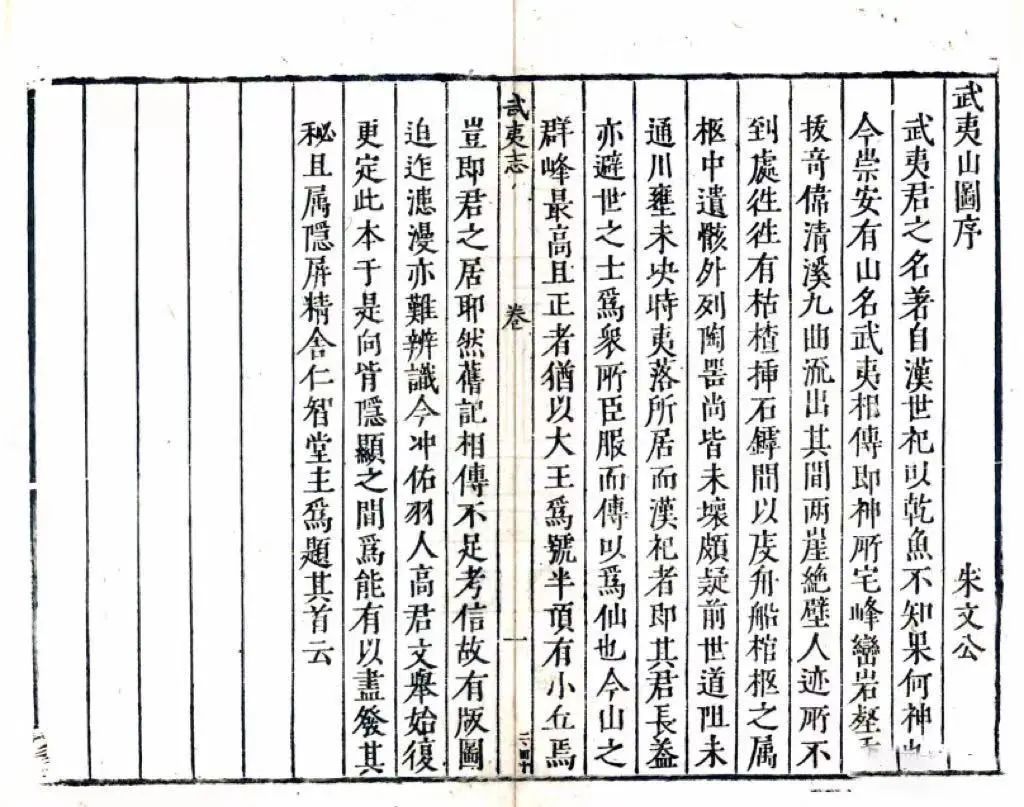 武夷山圖序 朱文公
武夷君之名著自漢世祀以乾魚不知果何神也
今崇安有山名武夷相傳即神所宅峰巒岩壑
拔竒偉清溪九曲流出其間两崖絶壁人迹所不
到處徃徃有枯楂揷石罅間以庋舟船棺柩之属
柩中遺骸外列陶噐尚皆未壞頗疑前世道阻未
通川壅未决時夷落所居而漢祀者即其君長盖
亦避世之士爲衆所臣服而傳以爲仙也今山之
群峰最高且正者猶以大王爲號半頂有小丘焉
武夷志
卷
一
豈即君之居耶然舊記相傳不足考信故有版圖
迫迮漶漫亦難辨識今冲佑羽人高君文舉始復
更定此本于是向背隠顯之間爲能有以盡發其
秘且属隠屏精舎仁智堂主爲題其首云